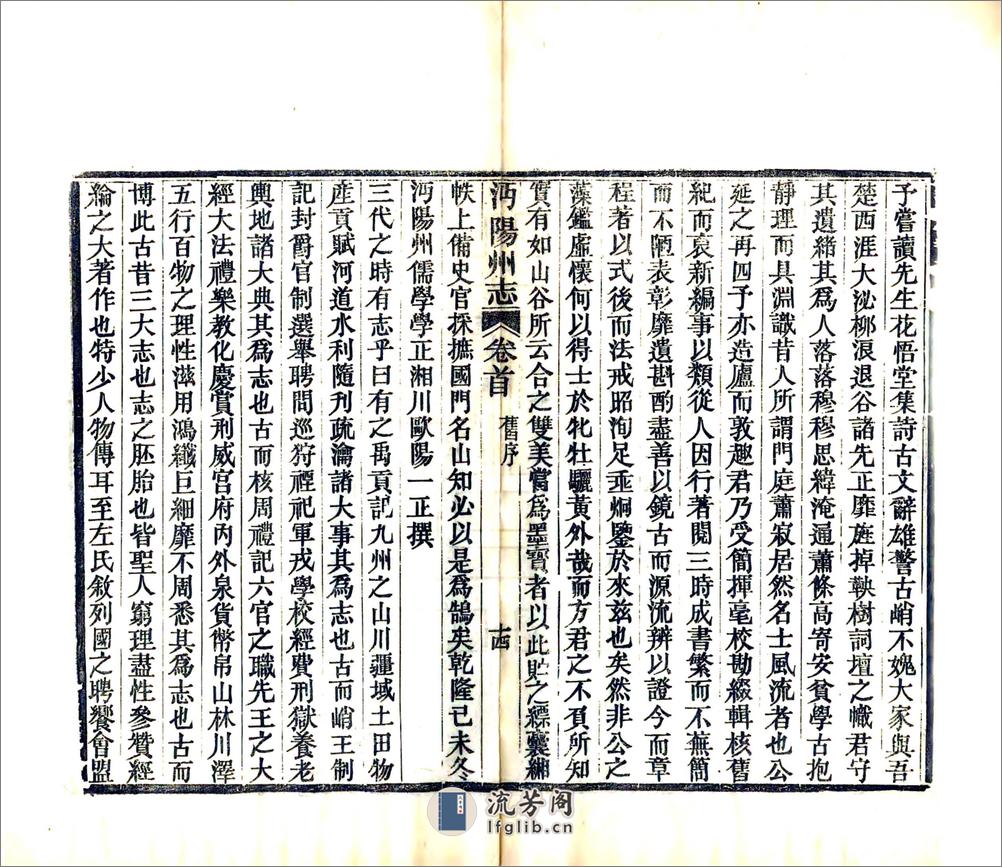 予嘗讀先生花悟堂集詩古文辭雄警古峭不媿大家與吾
楚西涯大泌柳浪退谷諸先正靡旌掉鞅樹詞壇之幟君守
其遺緒其爲人落落穆穆思緯淹通蕭條高寄安貧學古抱
靜理而具淵識昔人所謂門庭蕭寂居然名士風流者也公
延之再四予亦造廬而敦趣君乃受簡揮毫校勘綴輯核舊
紀而裒新編事以類從人因行著閱三時成書繁而不蕪簡
而不陋表彰靡遺斟酌盡善以鏡古而源流辨以證今而章
程著以式後而法戒昭洵足垂炯鑒於來茲也矣然非公之
藻鑑虛懷何以得士於牝牡驪黃外哉而方君之不負所知
實有如山谷所云合之雙美嘗爲墨寶者以此貯之縹囊緗
沔陽州志 卷首 舊序 十四
帙上備史官採摭國門名山知必以是爲鵠矣乾隆己未冬
沔陽州儒學學正湘川歐陽一正撰
三代之時有志乎曰有之禹貢記九州之山川疆域土田物
產貢賦河道水利隨刊疏瀹諸大事其爲志也古而峭王制
記封爵官制選舉聘問巡狩禋祀軍戎學校經費刑獄養老
輿地諸大典其爲志也古而核周禮記六官之職先王之大
經大法禮樂教化慶賞刑威宮府內外泉貨幣帛山林川澤
五行百物之理性滋用鴻纖巨細靡不周悉其爲志也古而
博此古昔三大志也志之胚胎也皆聖人窮理盡性參贊經
綸之大著作也特少人物傳耳至左氏敘列國之聘饗會盟
流芳阁
lfglib.cn